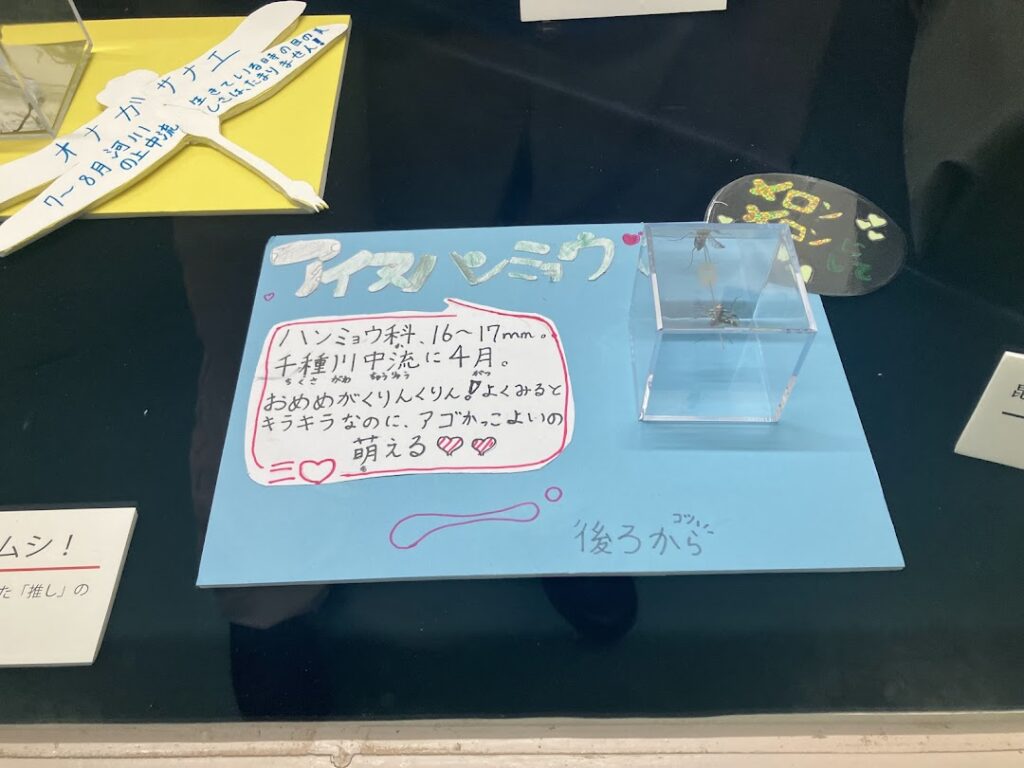 オナガサナエ
生きている時の目の美
しさは、たまりません!
7〜8月 河川
の上中流
アイヌハンミョウ
メロン
メロン
ハンミョウ科、16〜17mm。
か
千種川中流に4月。
ちくさ がわ ちゅうりゅう がつ
おめめがくりんくりん!よくみると
キラキラなのに、アゴかっこよいの
萌える♡♡
も
後ろから
ムシ!
た「推し」の
昆